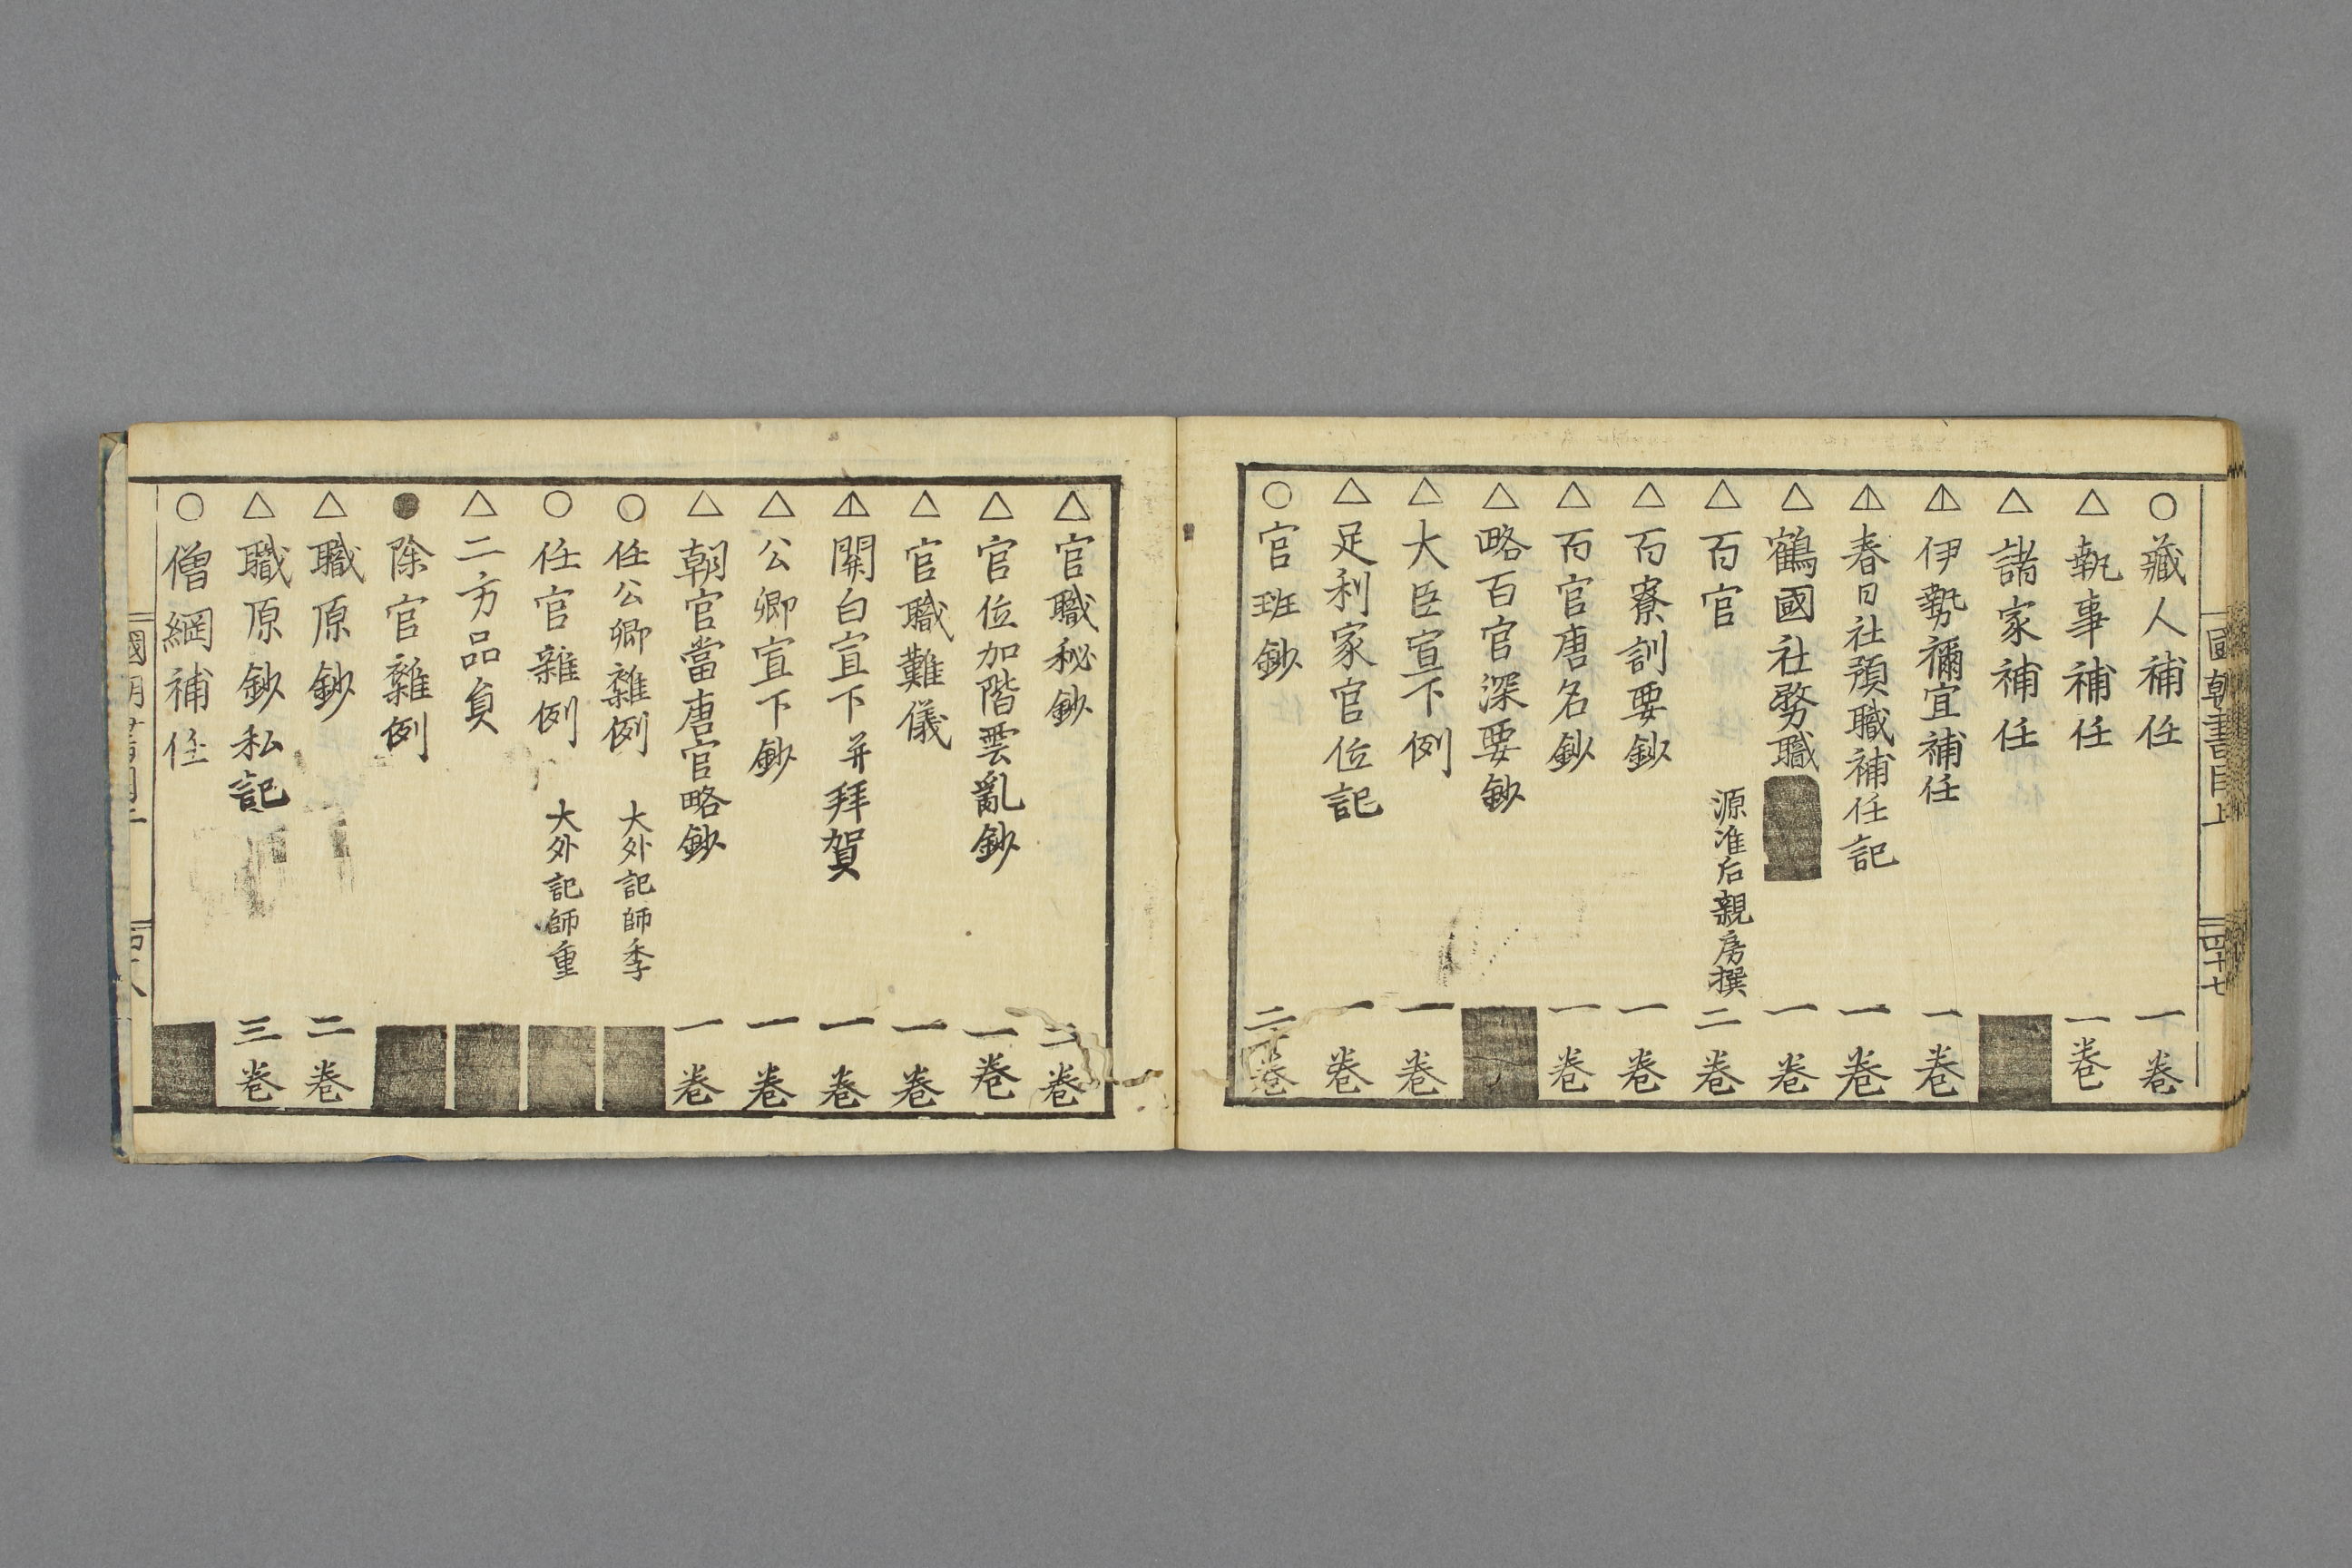 國朝書目上
四十七
○藏人補任 一卷
△執事補任 一卷
△諸家補任
△伊勢禰宜補任 一卷
△春日社預職補任記 一卷
△鶴國社務職 一卷
△百官 源准后親房撰 二卷
△百寮訓要鈔 一卷
△百官唐名鈔 一卷
△略百官深要鈔
△大臣宣下例 一卷
△足利家官位記 一卷
○官班鈔 二十卷
△官職秘鈔 二卷
△官位加階雲亂鈔 一卷
△官職難儀 一卷
△関白宣下并拜賀 一卷
△公卿宣下鈔 一卷
△朝官當唐官略鈔 一卷
○任公卿雜例 大外記師季
○任官雜例 大外記師重
△二方品負
●除官雜例
△職原鈔 二卷
△職原鈔私記 三卷
○僧綱補任